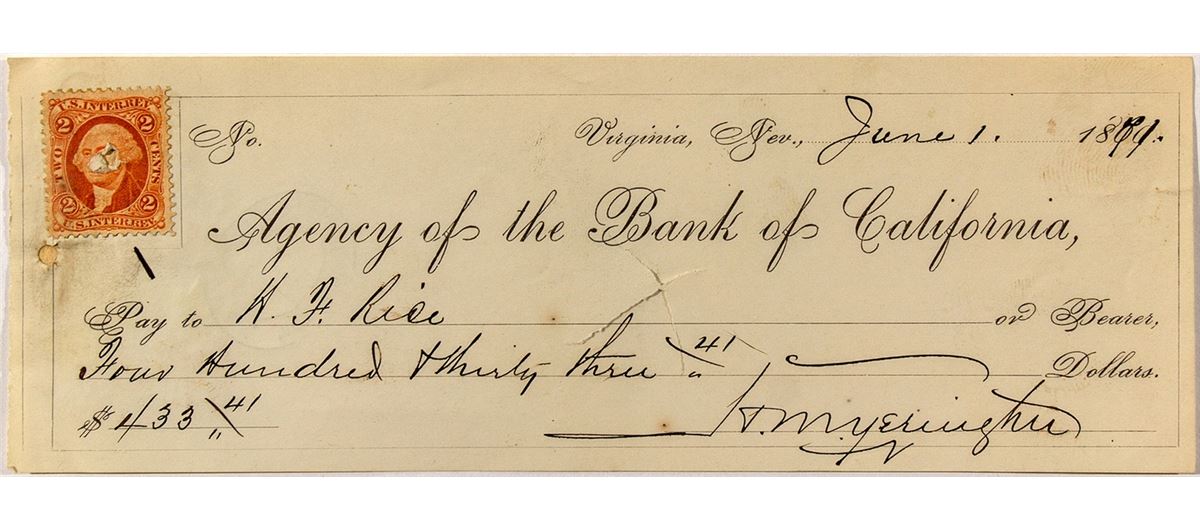 U.S. INTER. REV.
2 2
TWO CENTS
2 2
U.S. INTER. REV.
No. Virginia, Nev., June 1. 1871.
Agency of the Bank of California,
Pay to H. F. Rice or Bearer,
Four Hundred & thirty three 41 Dollars.
$ 433 41
H. M. Yerington